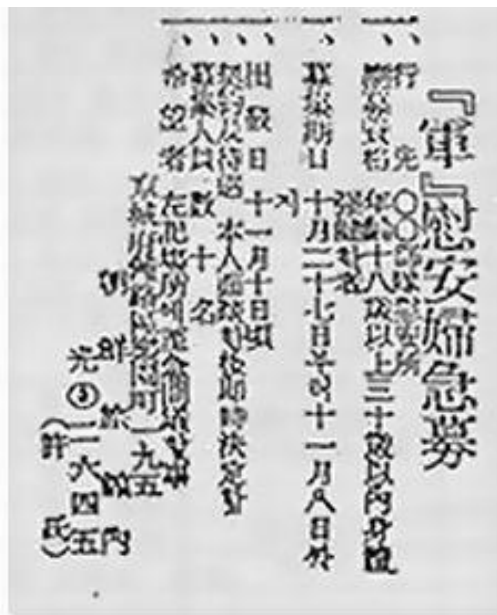 『軍』慰安婦急募
一、行先 ○○部隊慰安所
一、應募資格 年齡十八歲以上三十歲以內身體
强健한者
一、募集期日 十月二十七日부터十一月八日까
지
一、出發日 十一月十日頃
一、契約及待遇 本人面談한後即時決定함
一、募集人員 數十名
一、希望者 左記場所에至急問議할事
京城府鍾路區樂園町一九五
朝鮮旅館內
光③二六四五
(許氏)